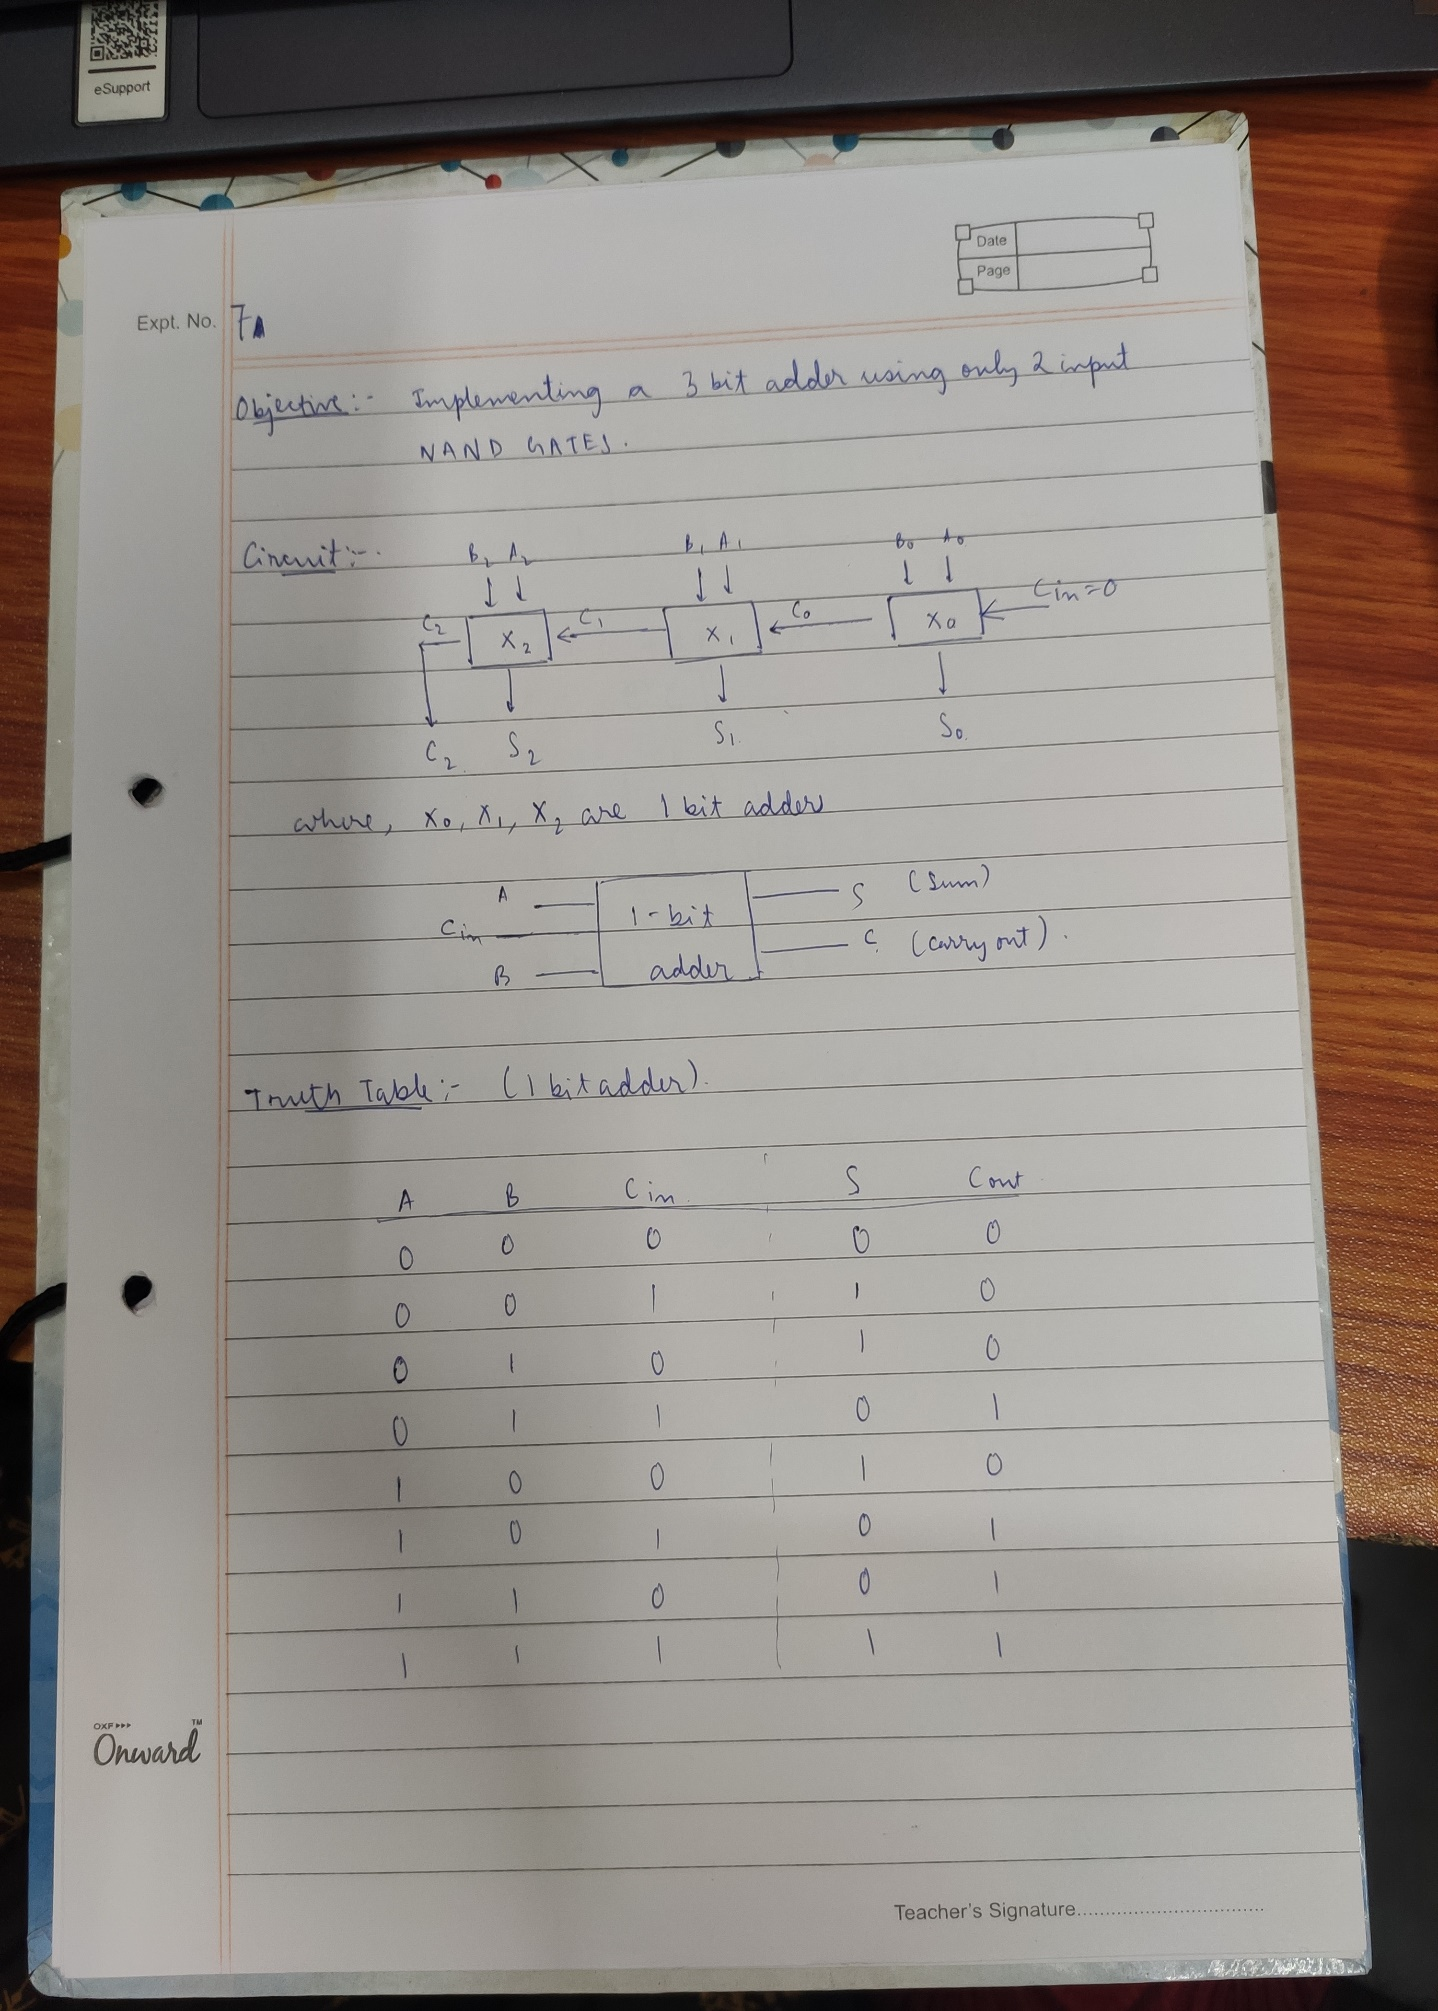 eSupport
Date
Page
Expt. No. 7A
Objective:- Implementing a 3 bit adder using only 2 input
NAND GATES.
Circuit:-
B₂ A₂ B₁ A₁ B₀ A₀
C₂ X₂ C₁ X₁ C₀ X₀ Cin=0
C₂ S₂ S₁ S₀
where, X₀, X₁, X₂ are 1 bit adders
A S (Sum)
Cin 1-bit C (carry out).
B adder
Truth Table:- (1 bit adder).
A B Cin S Cout
0 0 0 0 0
0 0 1 1 0
0 1 0 1 0
0 1 1 0 1
1 0 0 1 0
1 0 1 0 1
1 1 0 0 1
1 1 1 1 1
OXF▸▸▸
Onward™
Teacher's Signature.................................